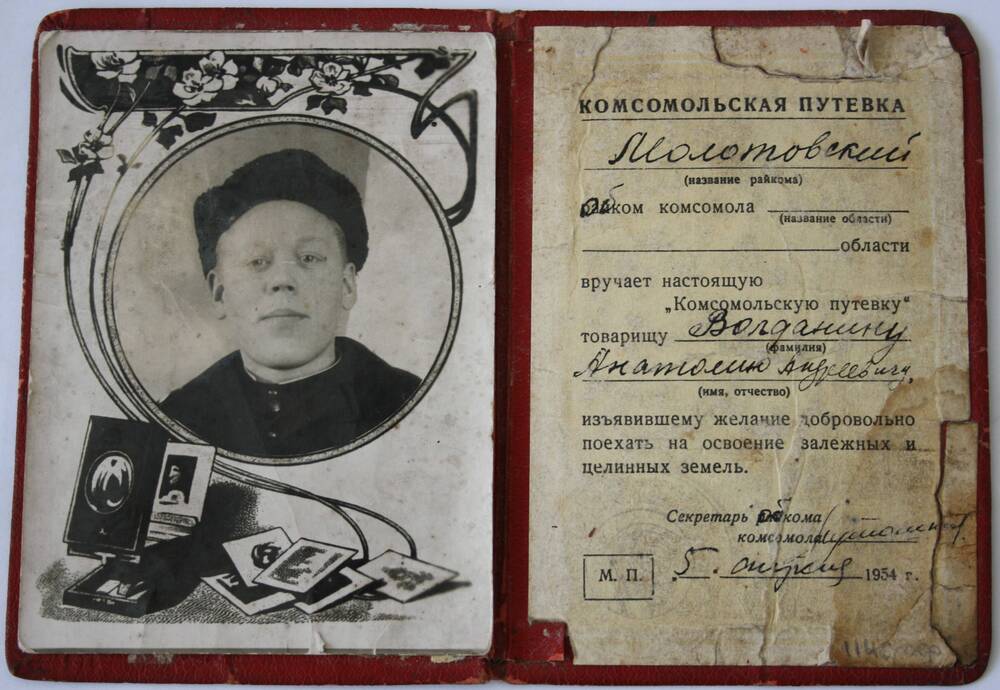 КОМСОМОЛЬСКАЯ ПУТЕВКА
Молотовский
(название райкома)
обком комсомола
(название области)
области
вручает настоящую
„Комсомольскую путевку“
товарищу Волданину
(фамилия)
Анатолию Андреевичу,
(имя, отчество)
изъявившему желание добровольно
поехать на освоение залежных и
целинных земель.
Секретарь обкома
комсомола
М. П. 5. апреля 1954 г.